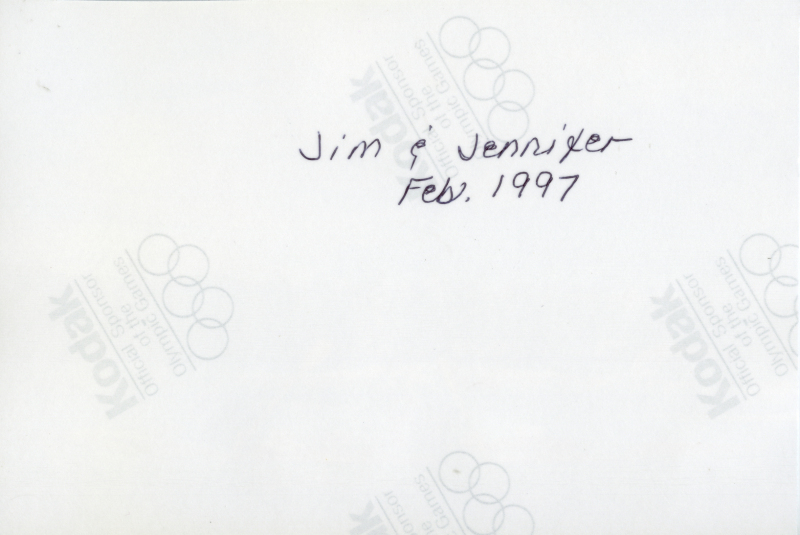 Jim & Jennifer
Feb. 1997
Kodak
Official Sponsor
of the
Olympic Games
Kodak
Official Sponsor
of the
Olympic Games
Kodak
Official Sponsor
of the
Olympic Games
Kodak
ponsor
the
Games